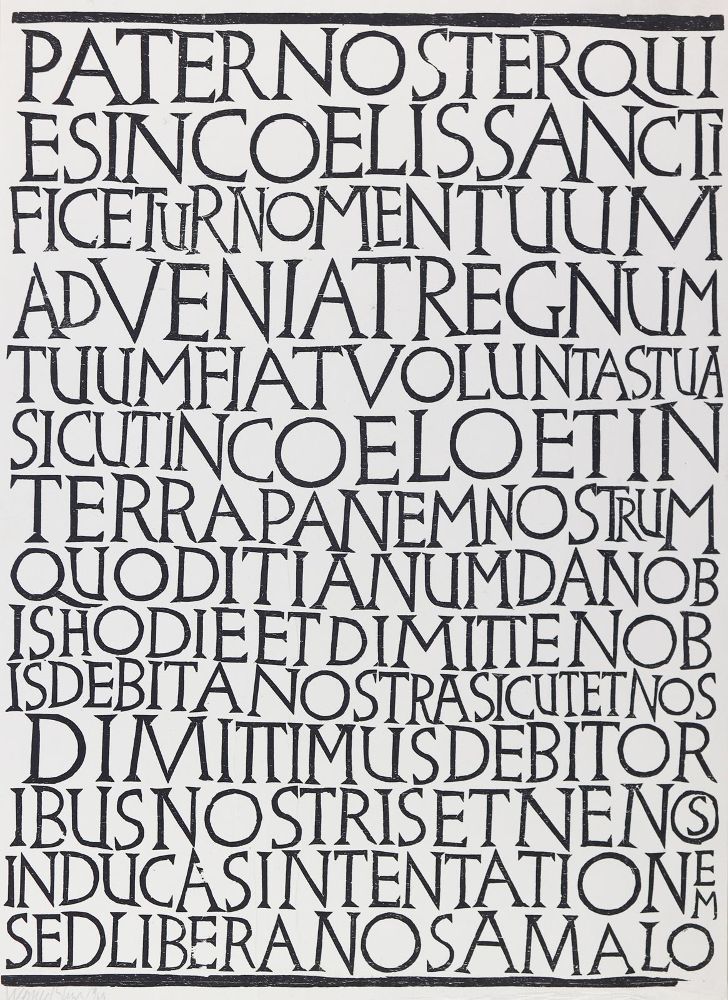 PATERNOSTERQUI
ESINCOELISSANCTI
FICETURNOMENTUUM
ADVENIATREGNUM
TUUMFIATVOLUNTASTUA
SICUTINCOELOETIN
TERRAPANEMNOSTRUM
QUODITIANUMDANOB
ISHODIEETDIMITTENOB
ISDEBITANOSTRASICUTETNOS
DIMITTIMUSDEBITOR
IBUSNOSTRISETNENOS
INDUCASINTENTATIONEM
SEDLIBERANOSAMALO